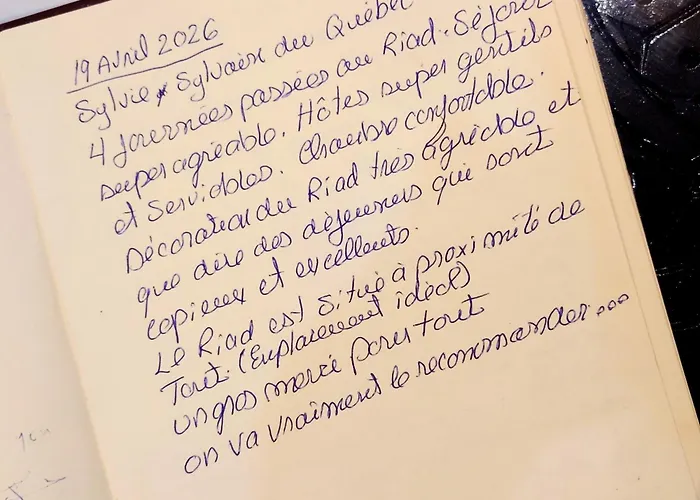 19 Avril 2026
Sylvie & Sylvain du Québec
4 journées passées au Riad. Séjour
super agréable. Hôtes super gentils
et serviables. Chambre confortable.
Décoration du Riad très agréable et
que dire des déjeuners qui sont
copieux et excellents.
Le Riad est situé à proximité de
Tout. (Emplacement idéal)
un gros merci pour tout
on va vraiment le recommander...